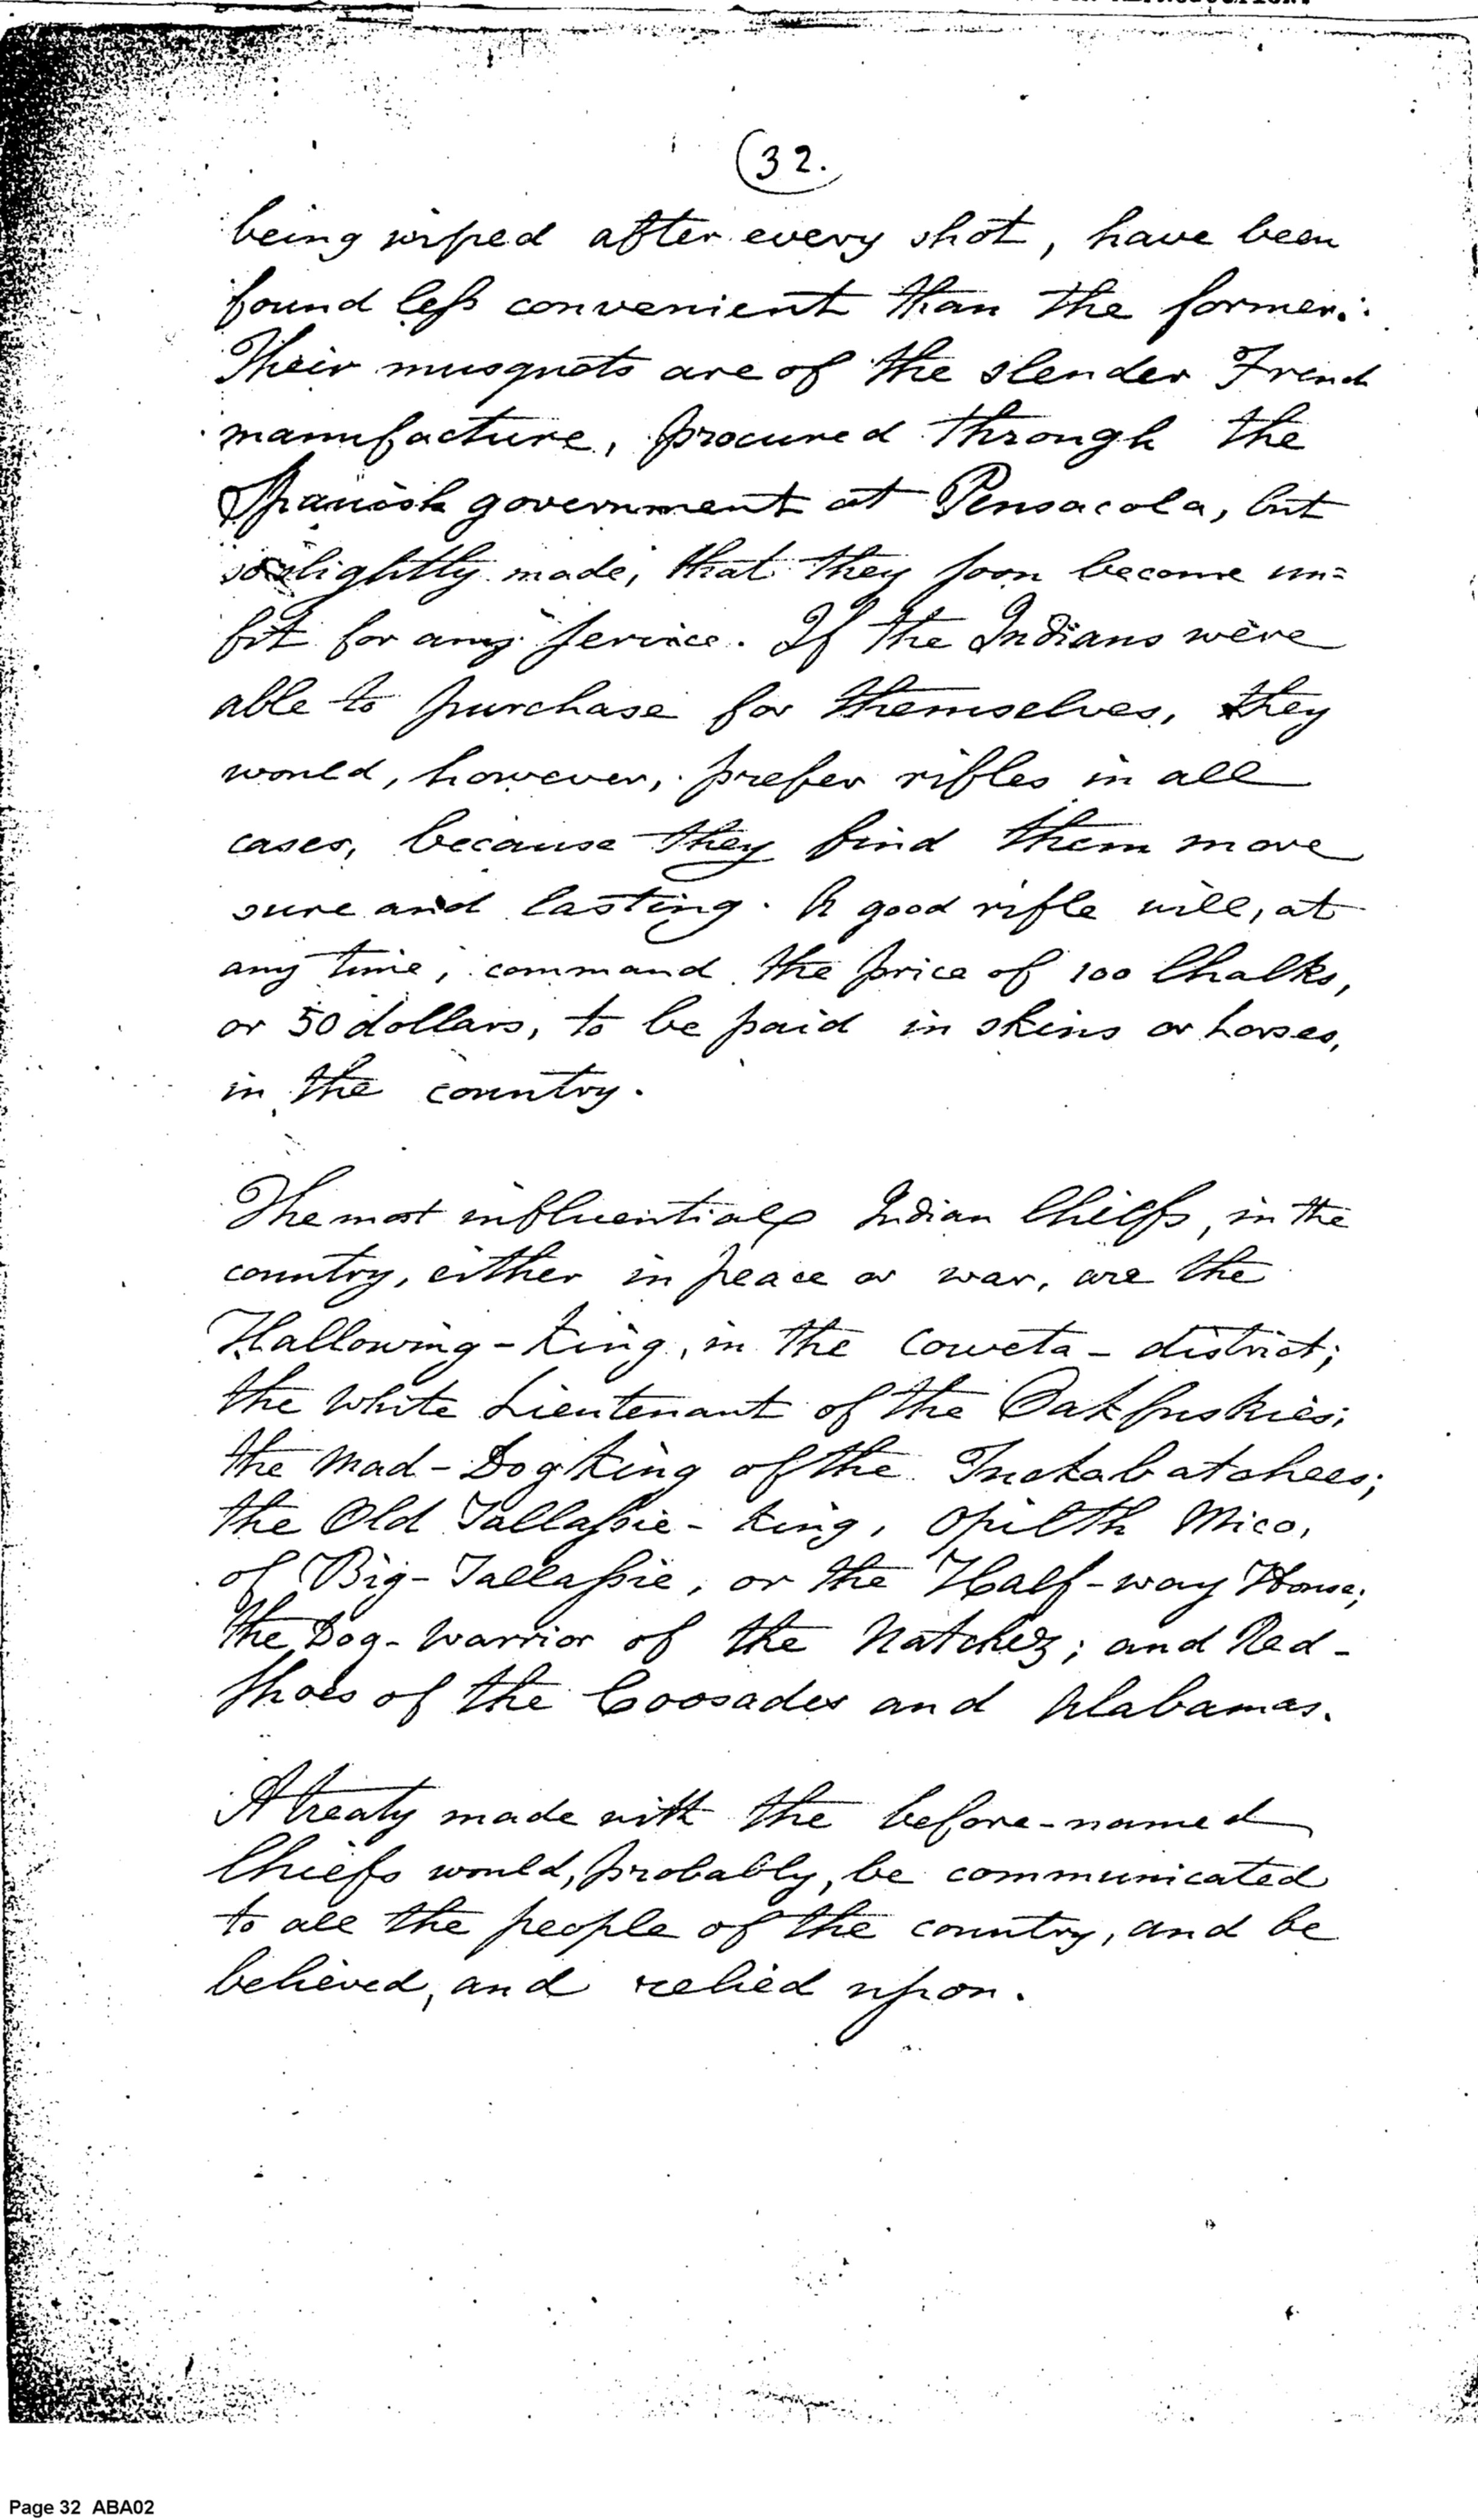 (32.
being wiped after every shot, have been
found less convenient than the former.
Their musquets are of the slender French
manufacture, procured through the
Spanish government at Pensacola, but
so slightly made, that they soon become un=
fit for any service. If the Indians were
able to purchase for themselves, they
would, however, prefer rifles in all
cases, because they find them more
sure and lasting. A good rifle will, at
any time, command the price of 100 Chalks,
or 50 dollars, to be paid in skins or horses,
in the country.
The most influential Indian Chiefs, in the
country, either in peace or war, are the
Hallowing-King, in the Coweta-district;
the White Lieutenant of the Oakfuskies;
the Mad-Dog King of the Tuckabatchees;
the Old Tallassie-King, Opilth Mico,
of Big-Tallassie, or the Half-way House;
the Dog-Warrior of the Natchez; and Red-
Shoes of the Coosades and Alabamas.
A treaty made with the before-named
Chiefs would, probably, be communicated
to all the people of the country, and be
believed, and relied upon.
Page 32 ABA02